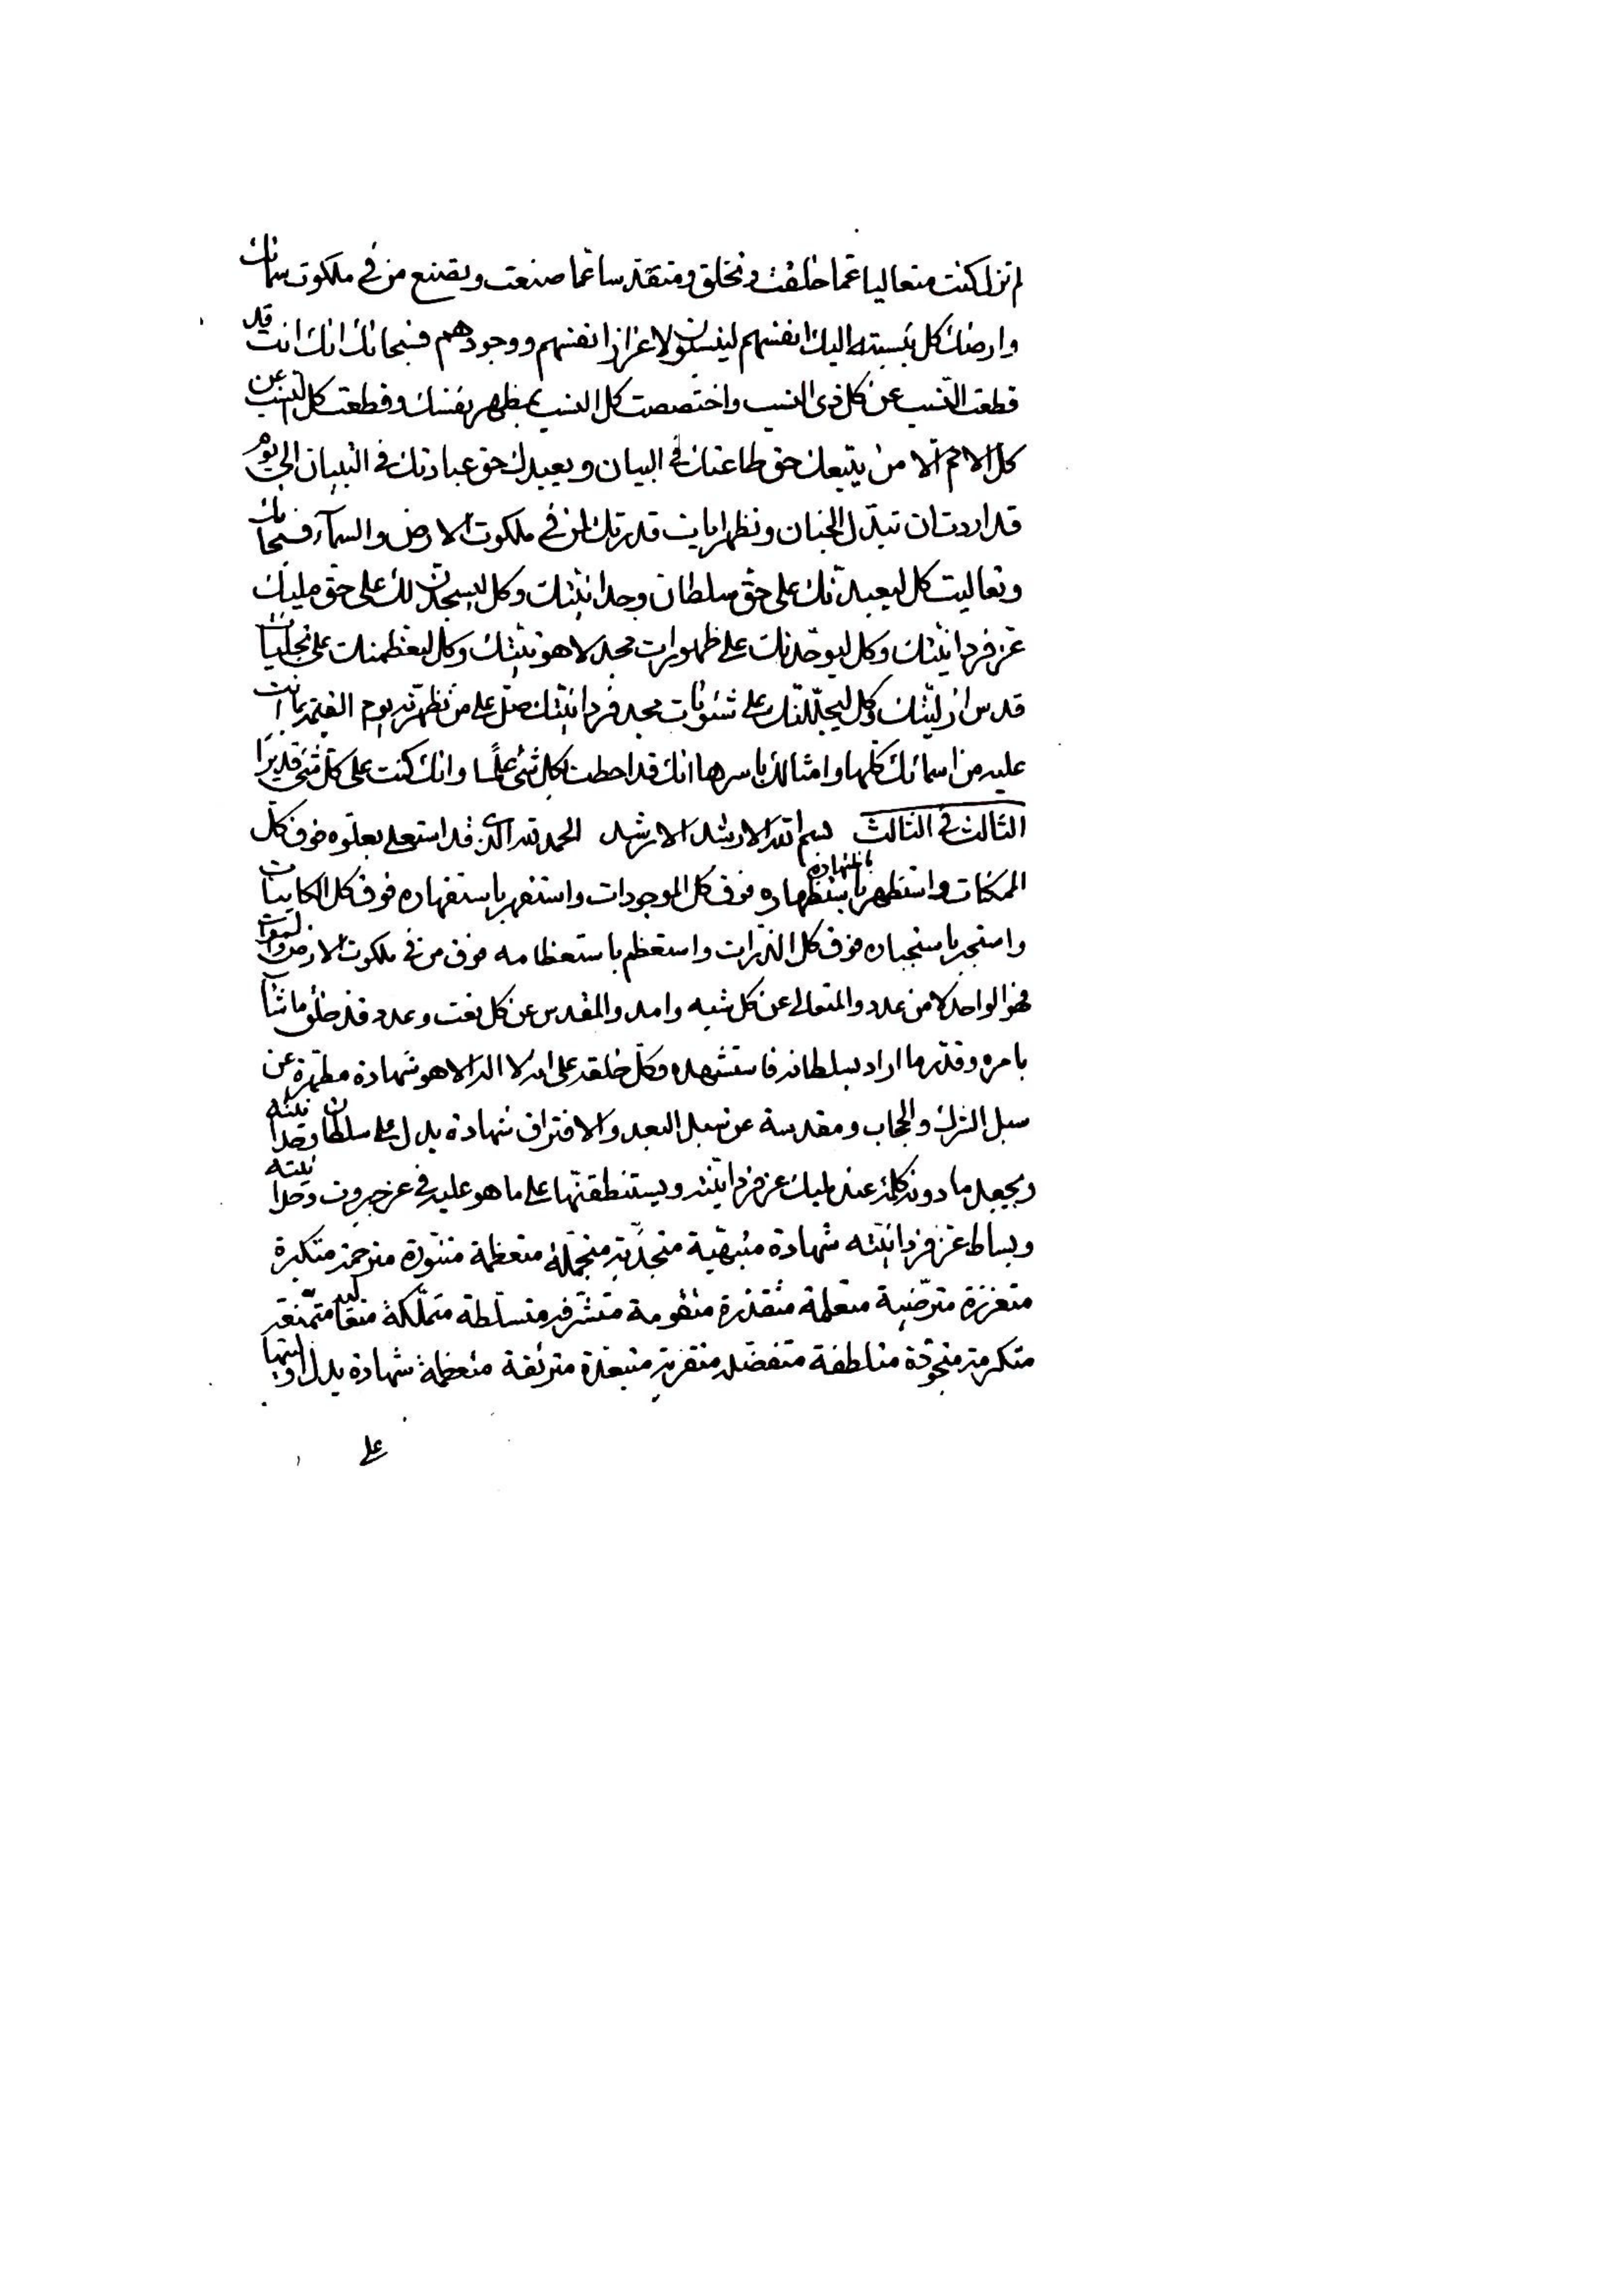 لم تزل كنت متعاليا عما خلقت وتخلق ومتقدسا عما صنعت وتصنع من في ملكوت سمائك
وارضك كل بنسبته اليك انفسهم لينسبون لاعزاز انفسهم ووجودهم فسبحانك انك انت قد
قطعت النسب عن كل ذي النسب واختصصت كل النسب بمظهر نفسك وقطعت كل النسب عن
كل الامم الا من يتبعك حق طاعتك في البيان ويعبدك حق عبادتك في التبيان الى يوم
قد اردت ان تبدل الجنان وتظهر ايات قدرتك لمن في ملكوت الارض والسمآء فسبحانك
وتعاليت كل ليعبدنك على حق سلطان وحدانيتك وكل ليسجدن لك على حق مليك
عز فردانيتك وكل ليوحدنك على ظهورات مجد لاهوتيتك وكل ليعظمنك على تجليات
قدس ازليتك وكل ليجللنك على شئونات مجد فردانيتك صل على من تظهرنه يوم القيمة بما انت
عليه من اسمائك كلها وامثالك باسرها انك قد احطت بكل شئ علما وانك كنت على كل شئ قديرا
الثالث في الثالث بسم الله الارشد الارشد الحمد لله الذي قد استعلى بعلوه فوق كل
الممكنات واستظهر باستظهاره فوق كل الموجودات واستقهر باستقهاره فوق كل الكاينات
واستجبر باستجباره فوق كل الذرات واستعظم باستعظامه فوق من في ملكوت الارض والسموات
فهو الواحد لا من عدد والمتعالى عن كل شبه وامد والمقدس عن كل نعت وعدد قد خلق ما شآء
بامره وقدر ما اراد بسلطانه فاستشهده وكل خلقه على انه لا اله الا هو شهادة مطهرة عن
سبل الشرك والحجاب ومقدسة عن سبل البعد والافتراق شهادة يدل على سلطان وحدانيته
ويجعل ما دونه كله عند مليك عز فردانيته ويستنطقنها على ما هو عليه في عز جبروت وحدانيته
وبساط عز فردانيته شهادة متبهية متجدبة متجملة متعظمة متنورة مترحمة متكبرة
متعززة مترضية متعلمة متقدرة متقومة متشرفه متسلطة متملكة متعالية متمنعة
متكرمة متجودة متلطفة متفضله متقربة متبعدة مترئفة متعظمة شهادة يدل اوليتها
على